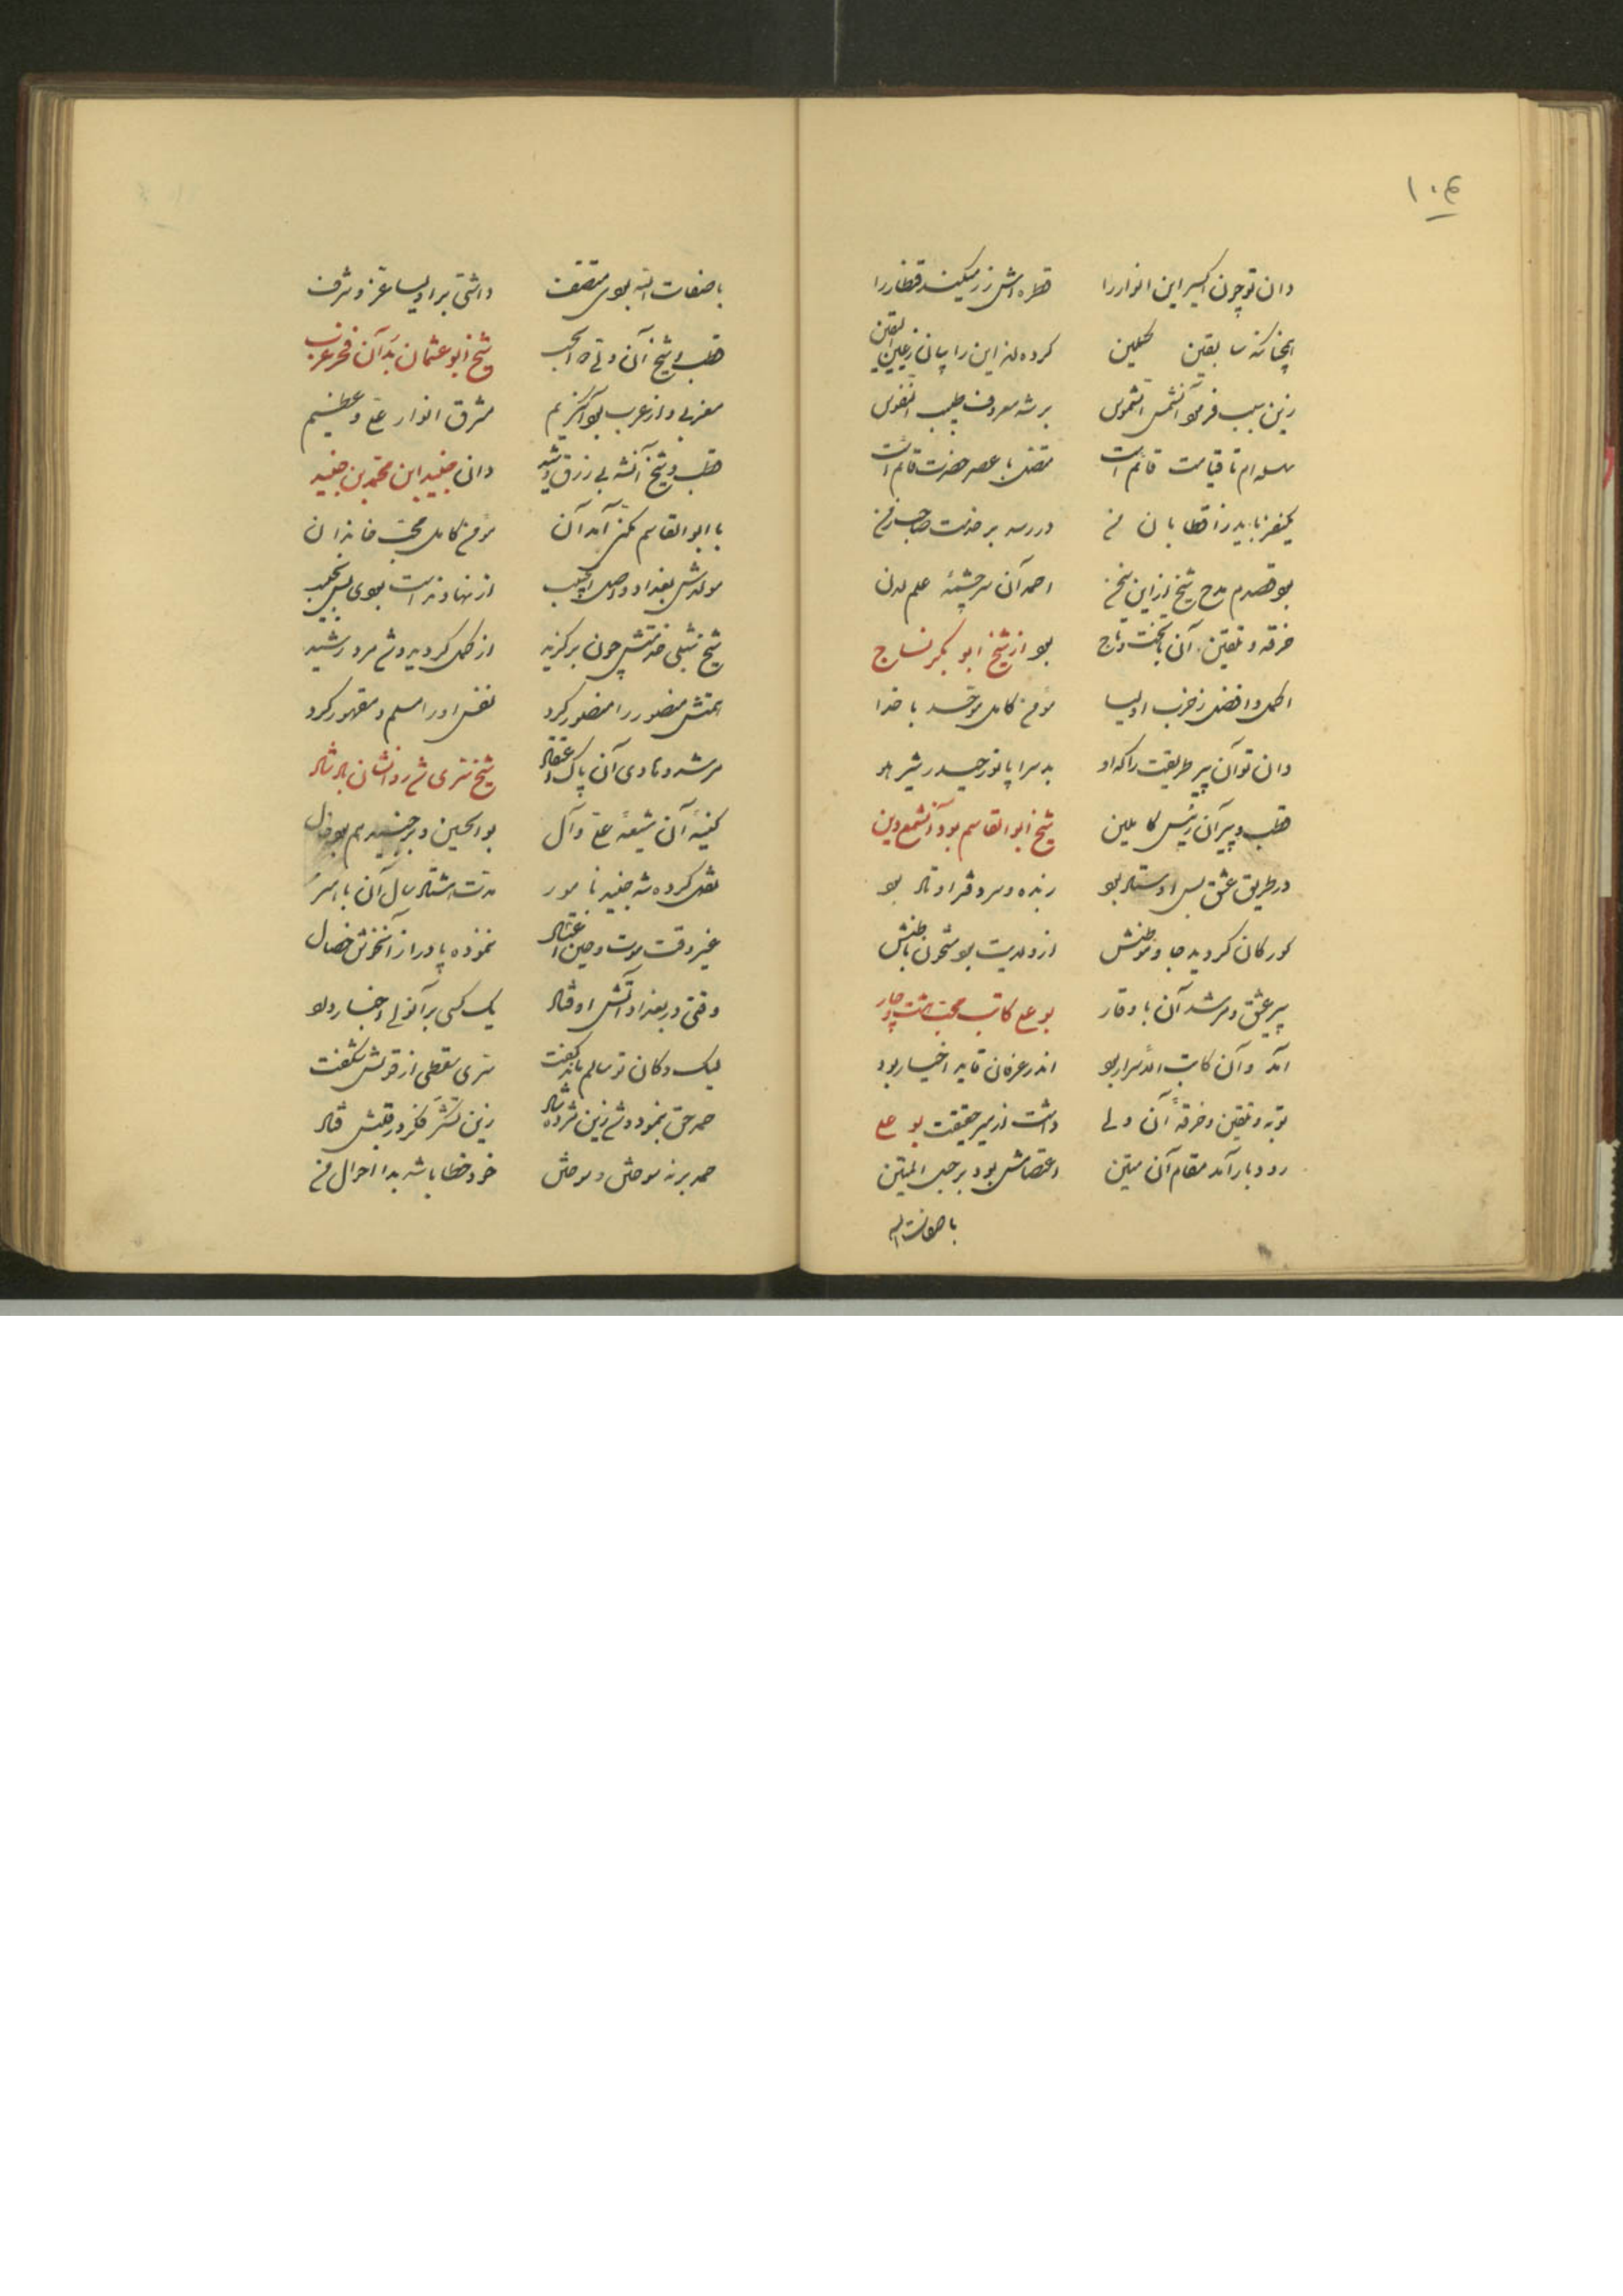 ۱۰۶
دان تو چون اکسیر این انوار را قطره اش زر میکند قطار را
سابقین کرده اند این را بیان از عین الیقین
زین سبب فرمود آن شمس الشموس بر شه معروف طیب النفوس
سلسله ام تا قیامت قائم است متصل با عصر حضرت قائم است
یکنفر باید ز اقطابان من در رسد بر خدمت صاحب زمن
بود قصدم مدح شیخ از این سخن احمد آن سرچشمهٔ علم لدن
خرقه و تلقین آن با تخت و تاج بود از شیخ ابو بکر نساج
اکمل و افضل ز حزب اولیا مؤمن کامل موحد با خدا
دان تو آن پیر طریقت را که او بد سراپا نور حیدر شیر هو
قطب و پیر آن رئیس کاملین شیخ ابوالقاسم بود آن شمع دین
در طریق عشق بس استاد بود زنده و سرو قد اوتاد بود
کورکان گردید جا و موطنش از ولایت بود مشحون باطنش
پیر عشق و مرشد آن با وقار بو علی کاتب محب هشت و چار
آمد و آن کاتب الاسرار بود اندر عرفان قاید اخیار بود
توبه و تلقین و خرقهٔ آن ولی داشت از میر حقیقت بو علی
رودبار آمد مقام آن متین اعتصامش بود بر حبل المتین
با صفات اله
با صفات اله بودی متصف داشتی بر اولیا عز و شرف
قطب و شیخ آن ولی شیخ ابو عثمان بد آن فخر عرب
مغربی و از عرب بود آن کریم مشرق انوار علی عظیم
قطب و شیخ آنشه بی زرق و شید دان جنید ابن محمد بن جنید
با ابوالقاسم مکنی آمد آن مؤمن کامل محب خاندان
مولدش بغداد و اصل از نهاوند است بودی بس نجیب
شیخ شبلی خدمتش چون برگزید از کمل گردید و شد مرد رشید
همتش منصور را منصور کرد نفس او را مسلم و مقهور کرد
مرشد و هادی آن پاک اعتقاد شیخ سری شد روانشان باد شاد
کنیهٔ آن شیعهٔ علی و آل بوالحسین و بر جنید هم بود خال
نقل کرده شه جنید نامور مدت هشتاد سال آن با هنر
غیر وقت موت و حین اعتلال ننموده پا دراز آنخوش خصال
وقتی در بغداد آتش اوفتاد یک کسی بر آنولی اخبار داد
لیک دکان تو سالم ماند گفت سری سقطی از قولش شگفت
حمد حق بنمود و شد زین مژده شاد زین تشکر فکر در قلبش فتاد
حمد بر نه سوختن و سوختن خود خطا باشد بدا احوال من